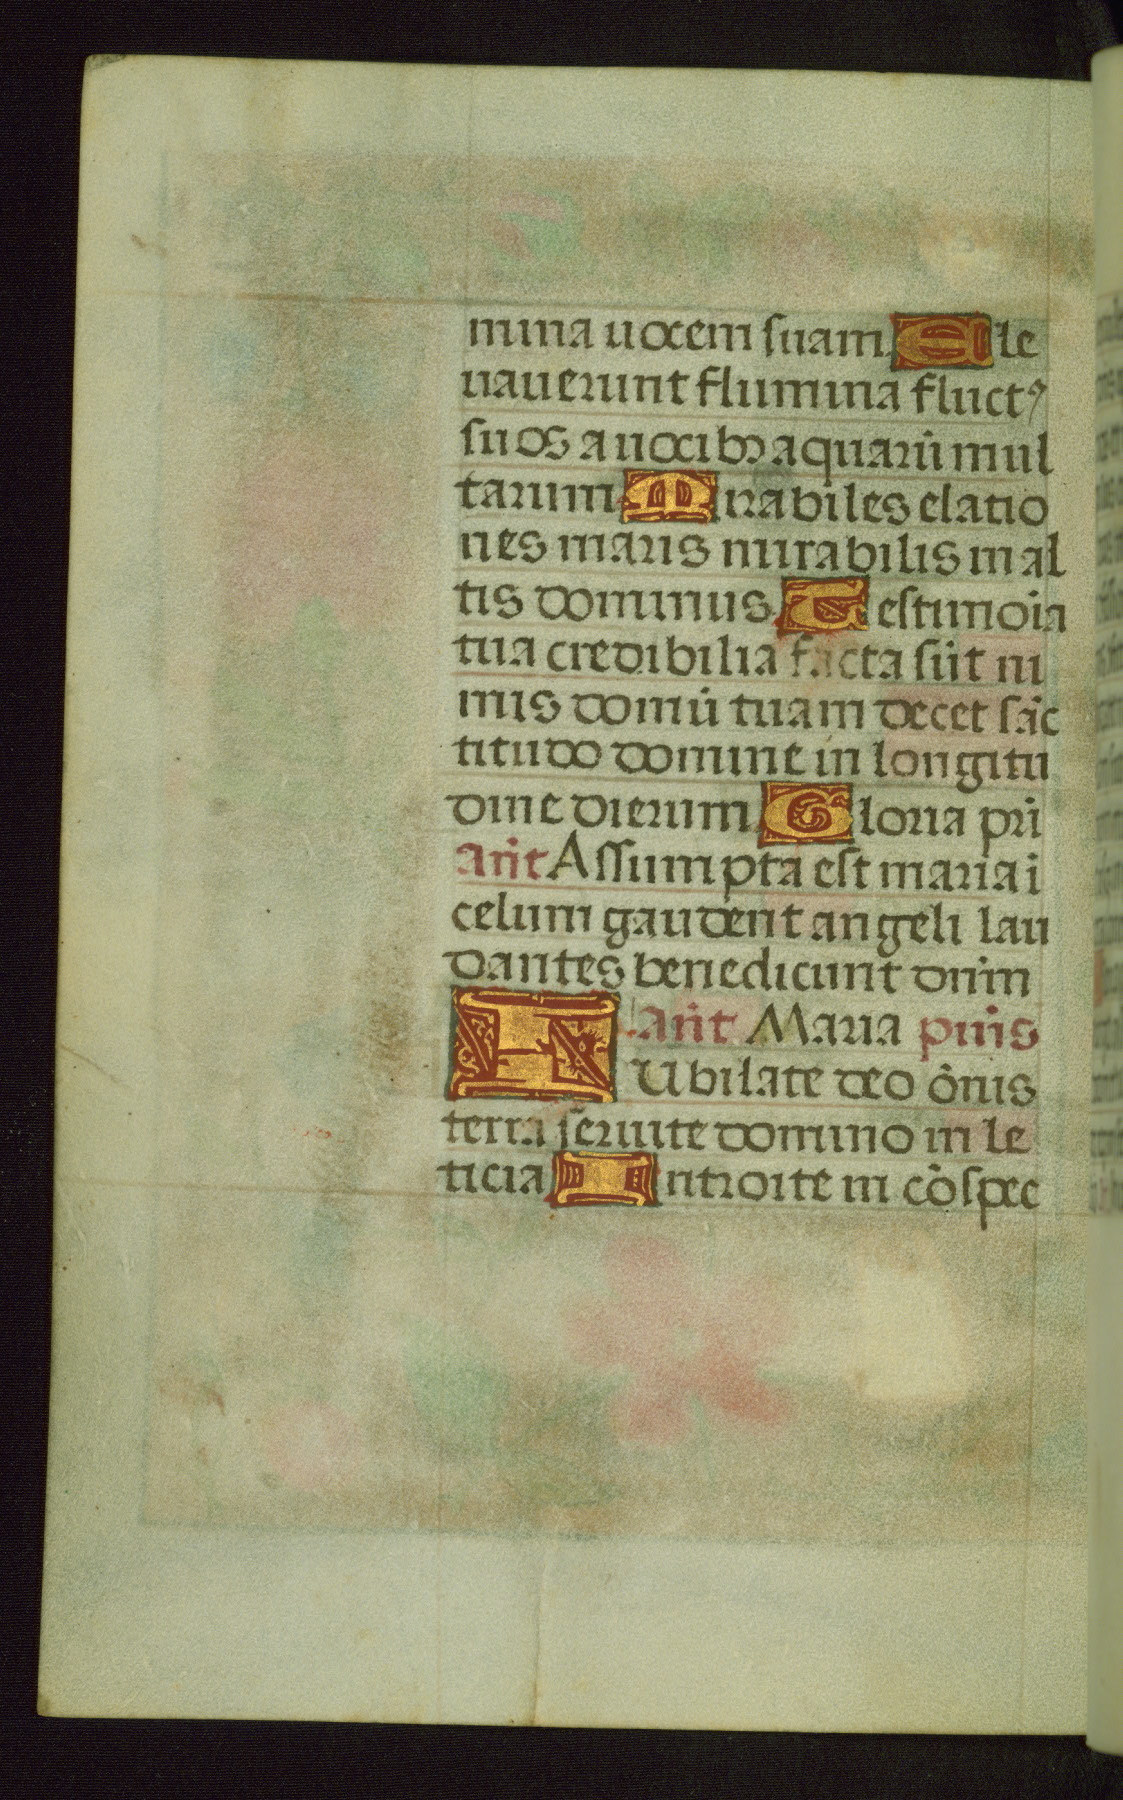 mina uocem suam Ele
uauerunt flumina fluctꝰ
suos a uocibꝫ aquarū mul
tarum Mirabiles elatio
nes maris mirabilis in al
tis dominus Testimoīa
tua credibilia facta sūt ni
mis domū tuam decet sāc
titudo domine in longitu
dine dierum Gloria pri
Añt Assumpta est maria ī
celum gaudent angeli lau
dantes benedicunt dn̄m
Añt Maria p̄uis
IUbilate deo ōnis
terra seruite domino in le
ticia Introite in cōspec